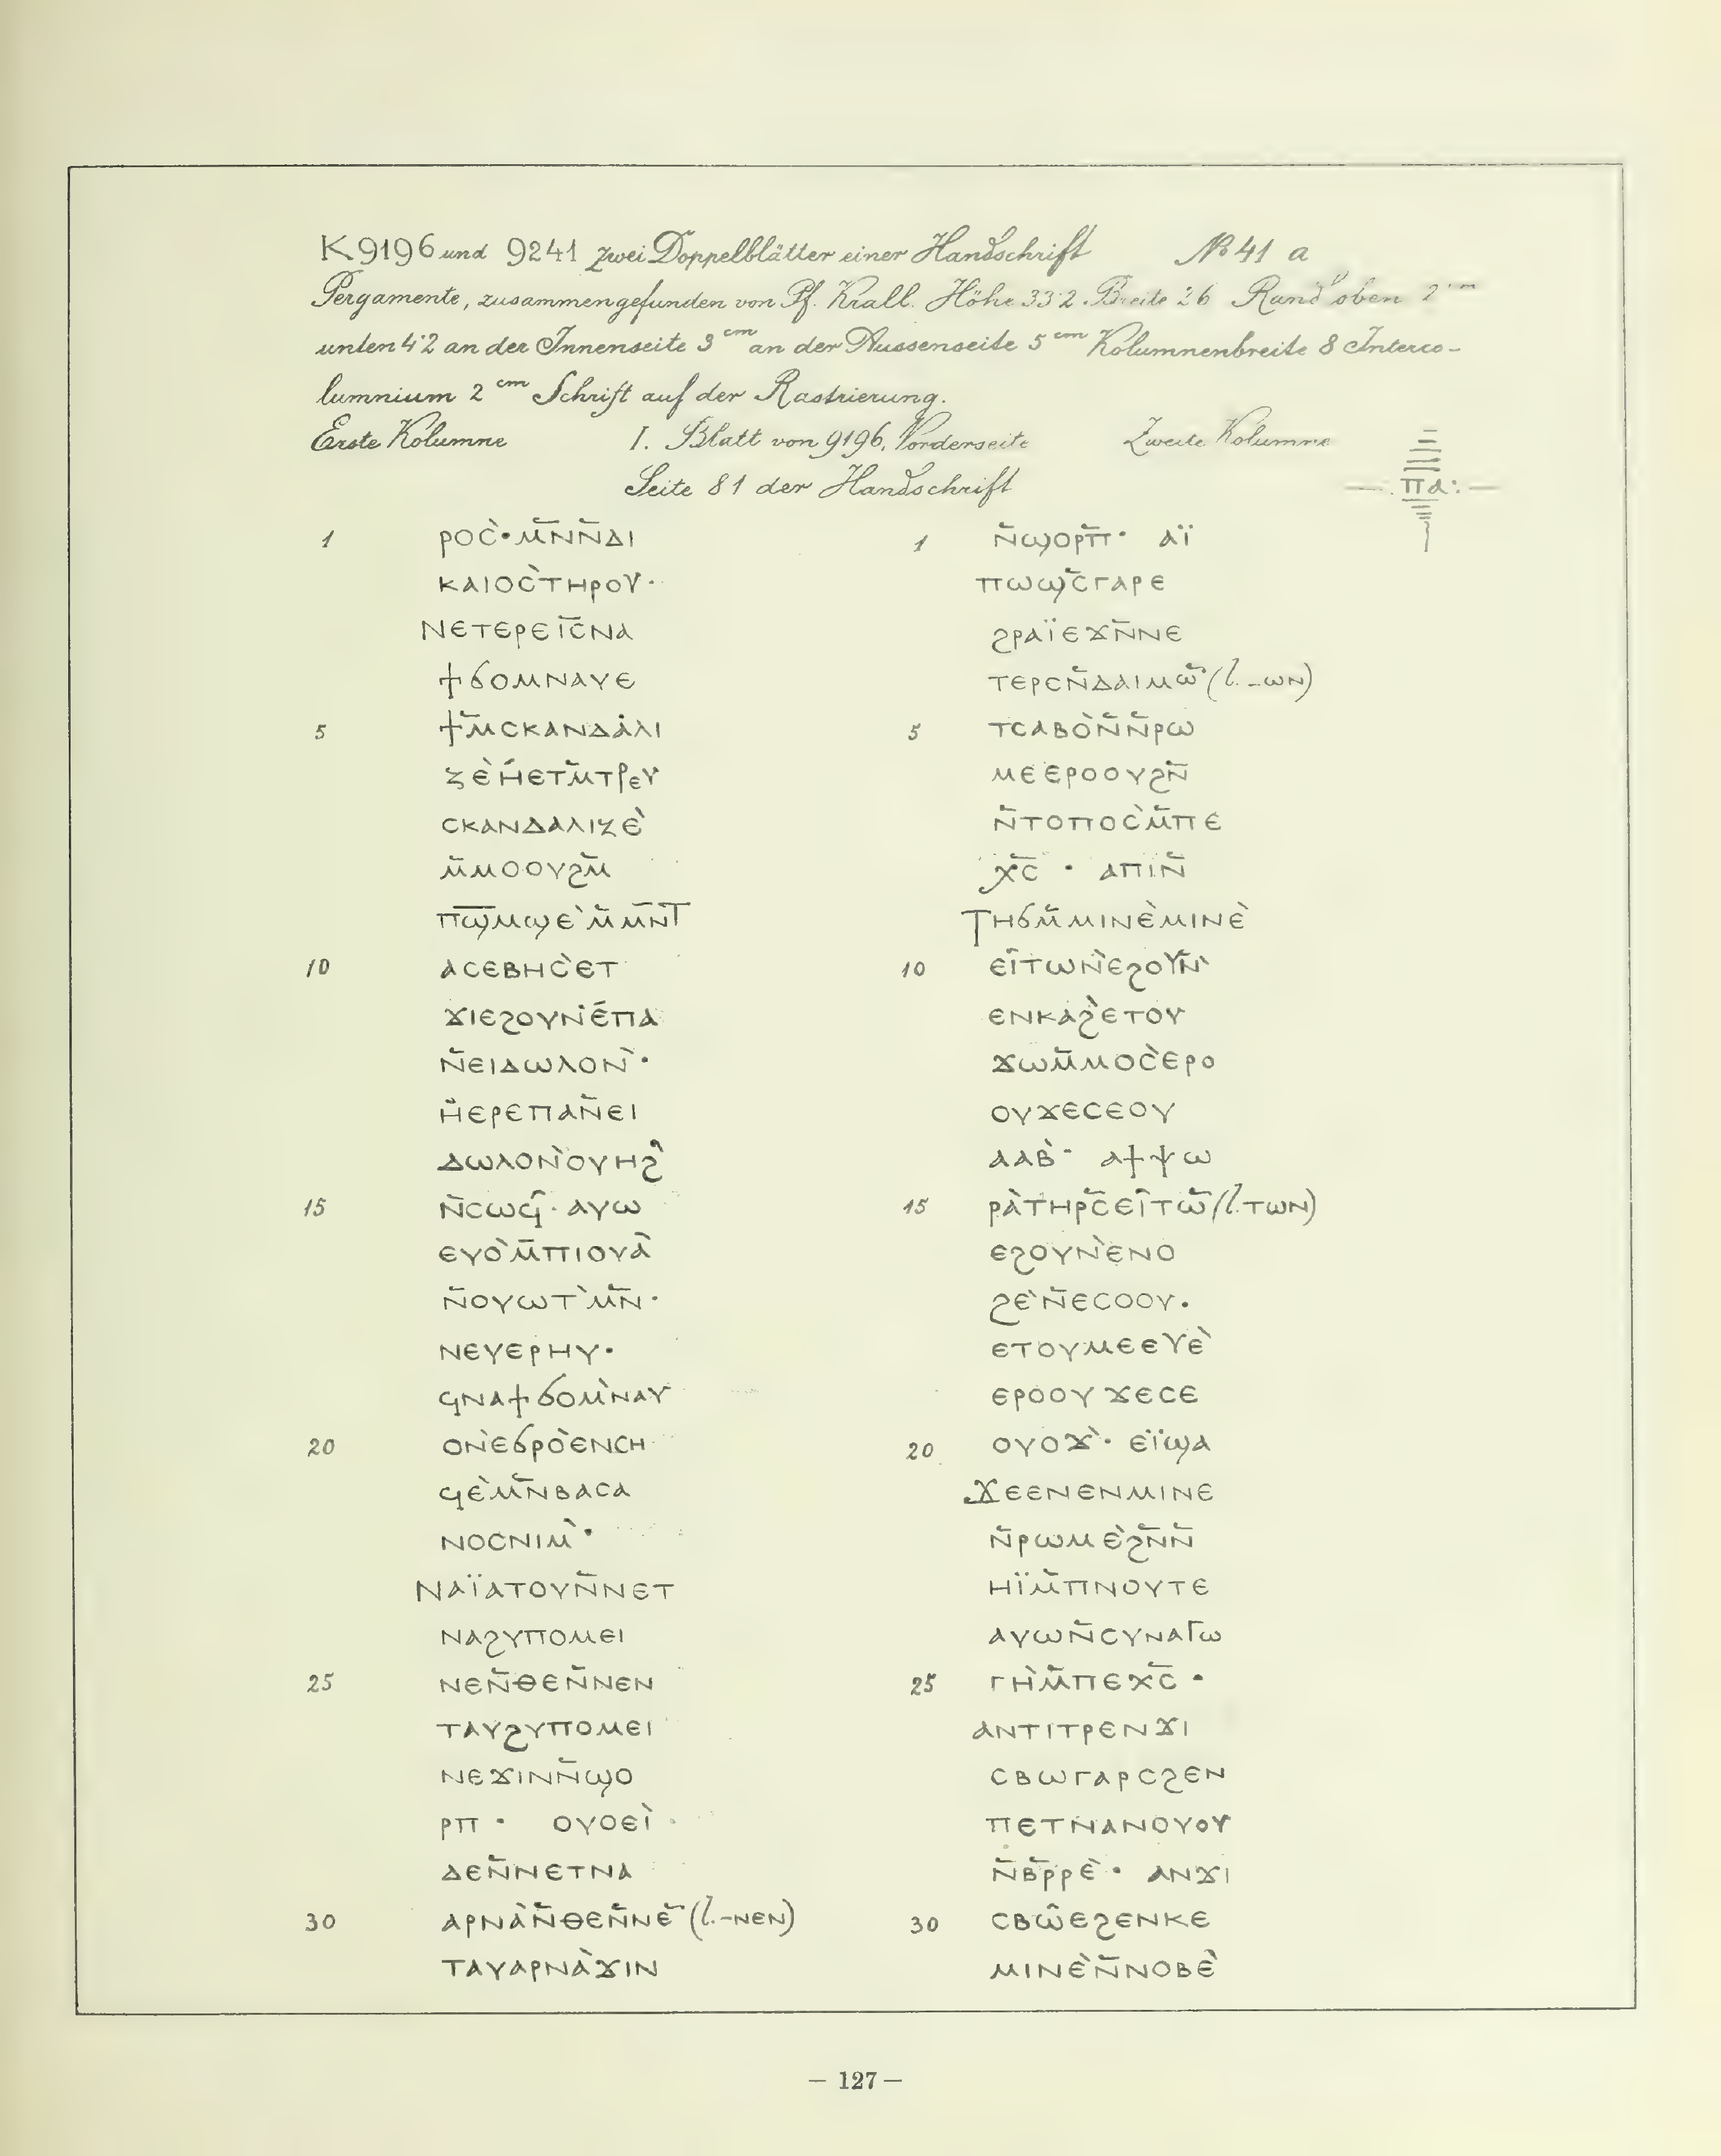 K 9196 und 9241 zwei Doppelblätter einer Handschrift № 41 a
Pergamente, zusammengefunden von Pf. Krall. Höhe 33·2. Breite 26 Rand oben 2 cm
unten 4·2 an der Innenseite 3 cm an der Aussenseite 5 cm Kolumnenbreite 8 Interco-
lumnium 2 cm Schrift auf der Rastrierung.
Erste Kolumne I. Blatt von 9196, Vorderseite Zweite Kolumne
Seite 81 der Handschrift ⲡⲁ:
1 ⲣⲟⲥ̀·ⲙ̄ⲛⲛ̄ⲇⲓ
ⲕⲁⲓⲟⲥ̀ⲧⲏⲣⲟⲩ·
ⲛⲉⲧⲉⲣⲉⲓ̄ⲥ̄ⲛⲁ
ϯϭⲟⲙⲛⲁⲩⲉ
5 ϯⲙ̄ⲥⲕⲁⲛⲇⲁⲗⲓ
ⲍⲉ̀ⲏ̀ⲉⲧⲙ̄ⲧⲣⲉⲩ
ⲥⲕⲁⲛⲇⲁⲗⲓⲍⲉ̀
ⲙ̄ⲙⲟⲟⲩϩⲙ̄
ⲡϣ̄ⲙϣⲉ̀ⲙ̄ⲙⲛ̄ⲧ
10 ⲁⲥⲉⲃⲏⲥ̀ⲉⲧ
ϫⲓⲉϩⲟⲩⲛ̀ⲉⲡⲁ
ⲛ̄ⲉⲓⲇⲱⲗⲟⲛ̀·
ⲏ̀ⲉⲣⲉⲡⲁⲛ̄ⲉⲓ
ⲇⲱⲗⲟⲛ̀ⲟⲩⲏϩ̀
15 ⲛ̄ⲥⲱϥ̀·ⲁⲩⲱ
ⲉⲩⲟ̀ⲙ̄ⲡⲓⲟⲩⲁ̀
ⲛ̄ⲟⲩⲱⲧ̀ⲙⲛ̄·
ⲛⲉⲩⲉⲣⲏⲩ·
ϥⲛⲁϯϭⲟⲙ̀ⲛⲁⲩ
20 ⲟⲛ̀ⲉϭⲣⲟ̀ⲉⲛⲥⲏ
ϥⲉ̀ⲙⲛ̄ⲃⲁⲥⲁ
ⲛⲟⲥⲛⲓⲙ̀·
ⲛⲁⲓ̈ⲁⲧⲟⲩⲛ̄ⲛⲉⲧ
ⲛⲁϩⲩⲡⲟⲙⲉⲓ
25 ⲛⲉⲛ̄ⲑⲉⲛ̄ⲛⲉⲛ
ⲧⲁⲩϩⲩⲡⲟⲙⲉⲓ
ⲛⲉϫⲓⲛⲛ̄ϣⲟ
ⲣⲡ· ⲟⲩⲟⲉⲓ̀
ⲇⲉⲛ̄ⲛⲉⲧⲛⲁ
30 ⲁⲣⲛⲁ̀ⲛ̄ⲑⲉⲛ̄ⲛⲉ̄ (l.-ⲛⲉⲛ)
ⲧⲁⲩⲁⲣⲛⲁ̀ϫⲓⲛ
1 ⲛ̄ϣⲟⲣⲡ̄· ⲁⲓ̈
ⲡⲱϣⲥ̄ⲅⲁⲣⲉ
ϩⲣⲁⲓ̈ⲉϫⲛ̄ⲛⲉ
ⲧⲉⲣⲉⲛ̄ⲇⲁⲓⲙⲱ̄ (l.-ⲱⲛ)
5 ⲧⲥⲁⲃⲟ̀ⲛ̄ⲛ̄ⲣⲱ
ⲙⲉⲉⲣⲟⲟⲩϩⲛ̄
ⲛ̄ⲧⲟⲡⲟⲥ̀ⲙ̄ⲡⲉ
ⲭ̄ⲥ̄ · ⲁⲡⲓⲛ̄
ⲧⲏϭⲙ̄ⲙⲓⲛⲉ̀ⲙⲓⲛⲉ̀
10 ⲉⲓ̂ⲧⲱⲛ̀ⲉϩⲟⲩⲛ̀
ⲉⲛⲕⲁϩ̀ⲉⲧⲟⲩ
ϫⲱⲙ̄ⲙⲟⲥ̀ⲉⲣⲟ
ⲟⲩϫⲉⲥⲉⲟⲩ
ⲁⲁⲃ̀· ⲁϯⲯⲱ
15 ⲣⲁ̀ⲧⲏⲣⲥ̄ⲉⲓ̂ⲧⲱ̄ (l.ⲧⲱⲛ)
ⲉϩⲟⲩⲛ̀ⲉⲛⲟ
ϩⲉ̀ⲛ̄ⲉⲥⲟⲟⲩ·
ⲉⲧⲟⲩⲙⲉⲉⲩⲉ̀
ⲉⲣⲟⲟⲩϫⲉⲥⲉ
20 ⲟⲩⲟϫ̀· ⲉⲓ̈ϣⲁ
ϫⲉⲉⲛⲉⲛⲙⲓⲛⲉ
ⲛ̄ⲣⲱⲙⲉ̀ϩⲛ̄ⲛ̄
ⲏⲓ̈ⲙ̄ⲡⲛⲟⲩⲧⲉ
ⲁⲩⲱⲛ̄ⲥⲩⲛⲁⲅⲱ
25 ⲅⲏ̀ⲙ̄ⲡⲉⲭ̄ⲥ̄·
ⲁⲛⲧⲓⲧⲣⲉⲛϫⲓ
ⲥⲃⲱⲅⲁⲣⲥϩⲉⲛ
ⲡⲉⲧⲛⲁⲛⲟⲩⲟⲩ
ⲛ̄ⲃ̄ⲣⲣⲉ̀· ⲁⲛϫⲓ
30 ⲥⲃⲱ̂ⲉϩⲉⲛⲕⲉ
ⲙⲓⲛⲉ̀ⲛ̄ⲛⲟⲃⲉ̀
— 127 —